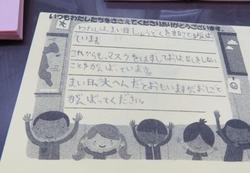 いつもわたしたちをささえてくださりありがとうございます。
わたしは、まい日しょうどくを
います
これからも、マスクをはずしておはなしをしない
ことをがんばっています。
まい日大へんだとおもいますがおしごと
がんばってください。